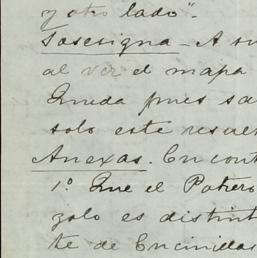 y otro lado".
Sosesigna - A su
al ver el mapa
Queda pues sa
solo este resuel
Anexas. En cont
1º Que el Potrero
zolo es distint
te de Encinillas